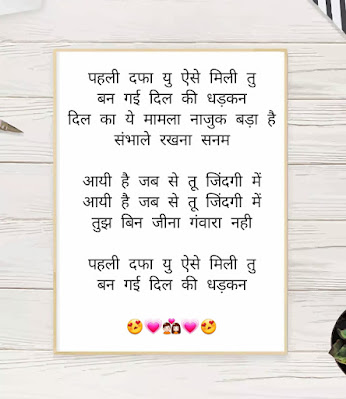 पहली दफा यु ऐसे मिली तु
बन गई दिल की धड़कन
दिल का ये मामला नाजुक बड़ा है
संभाले रखना सनम
आयी है जब से तू जिंदगी में
आयी है जब से तू जिंदगी में
तुझ बिन जीना गंवारा नही
पहली दफा यु ऐसे मिली तु
बन गई दिल की धड़कन
😍💗💏💗😍